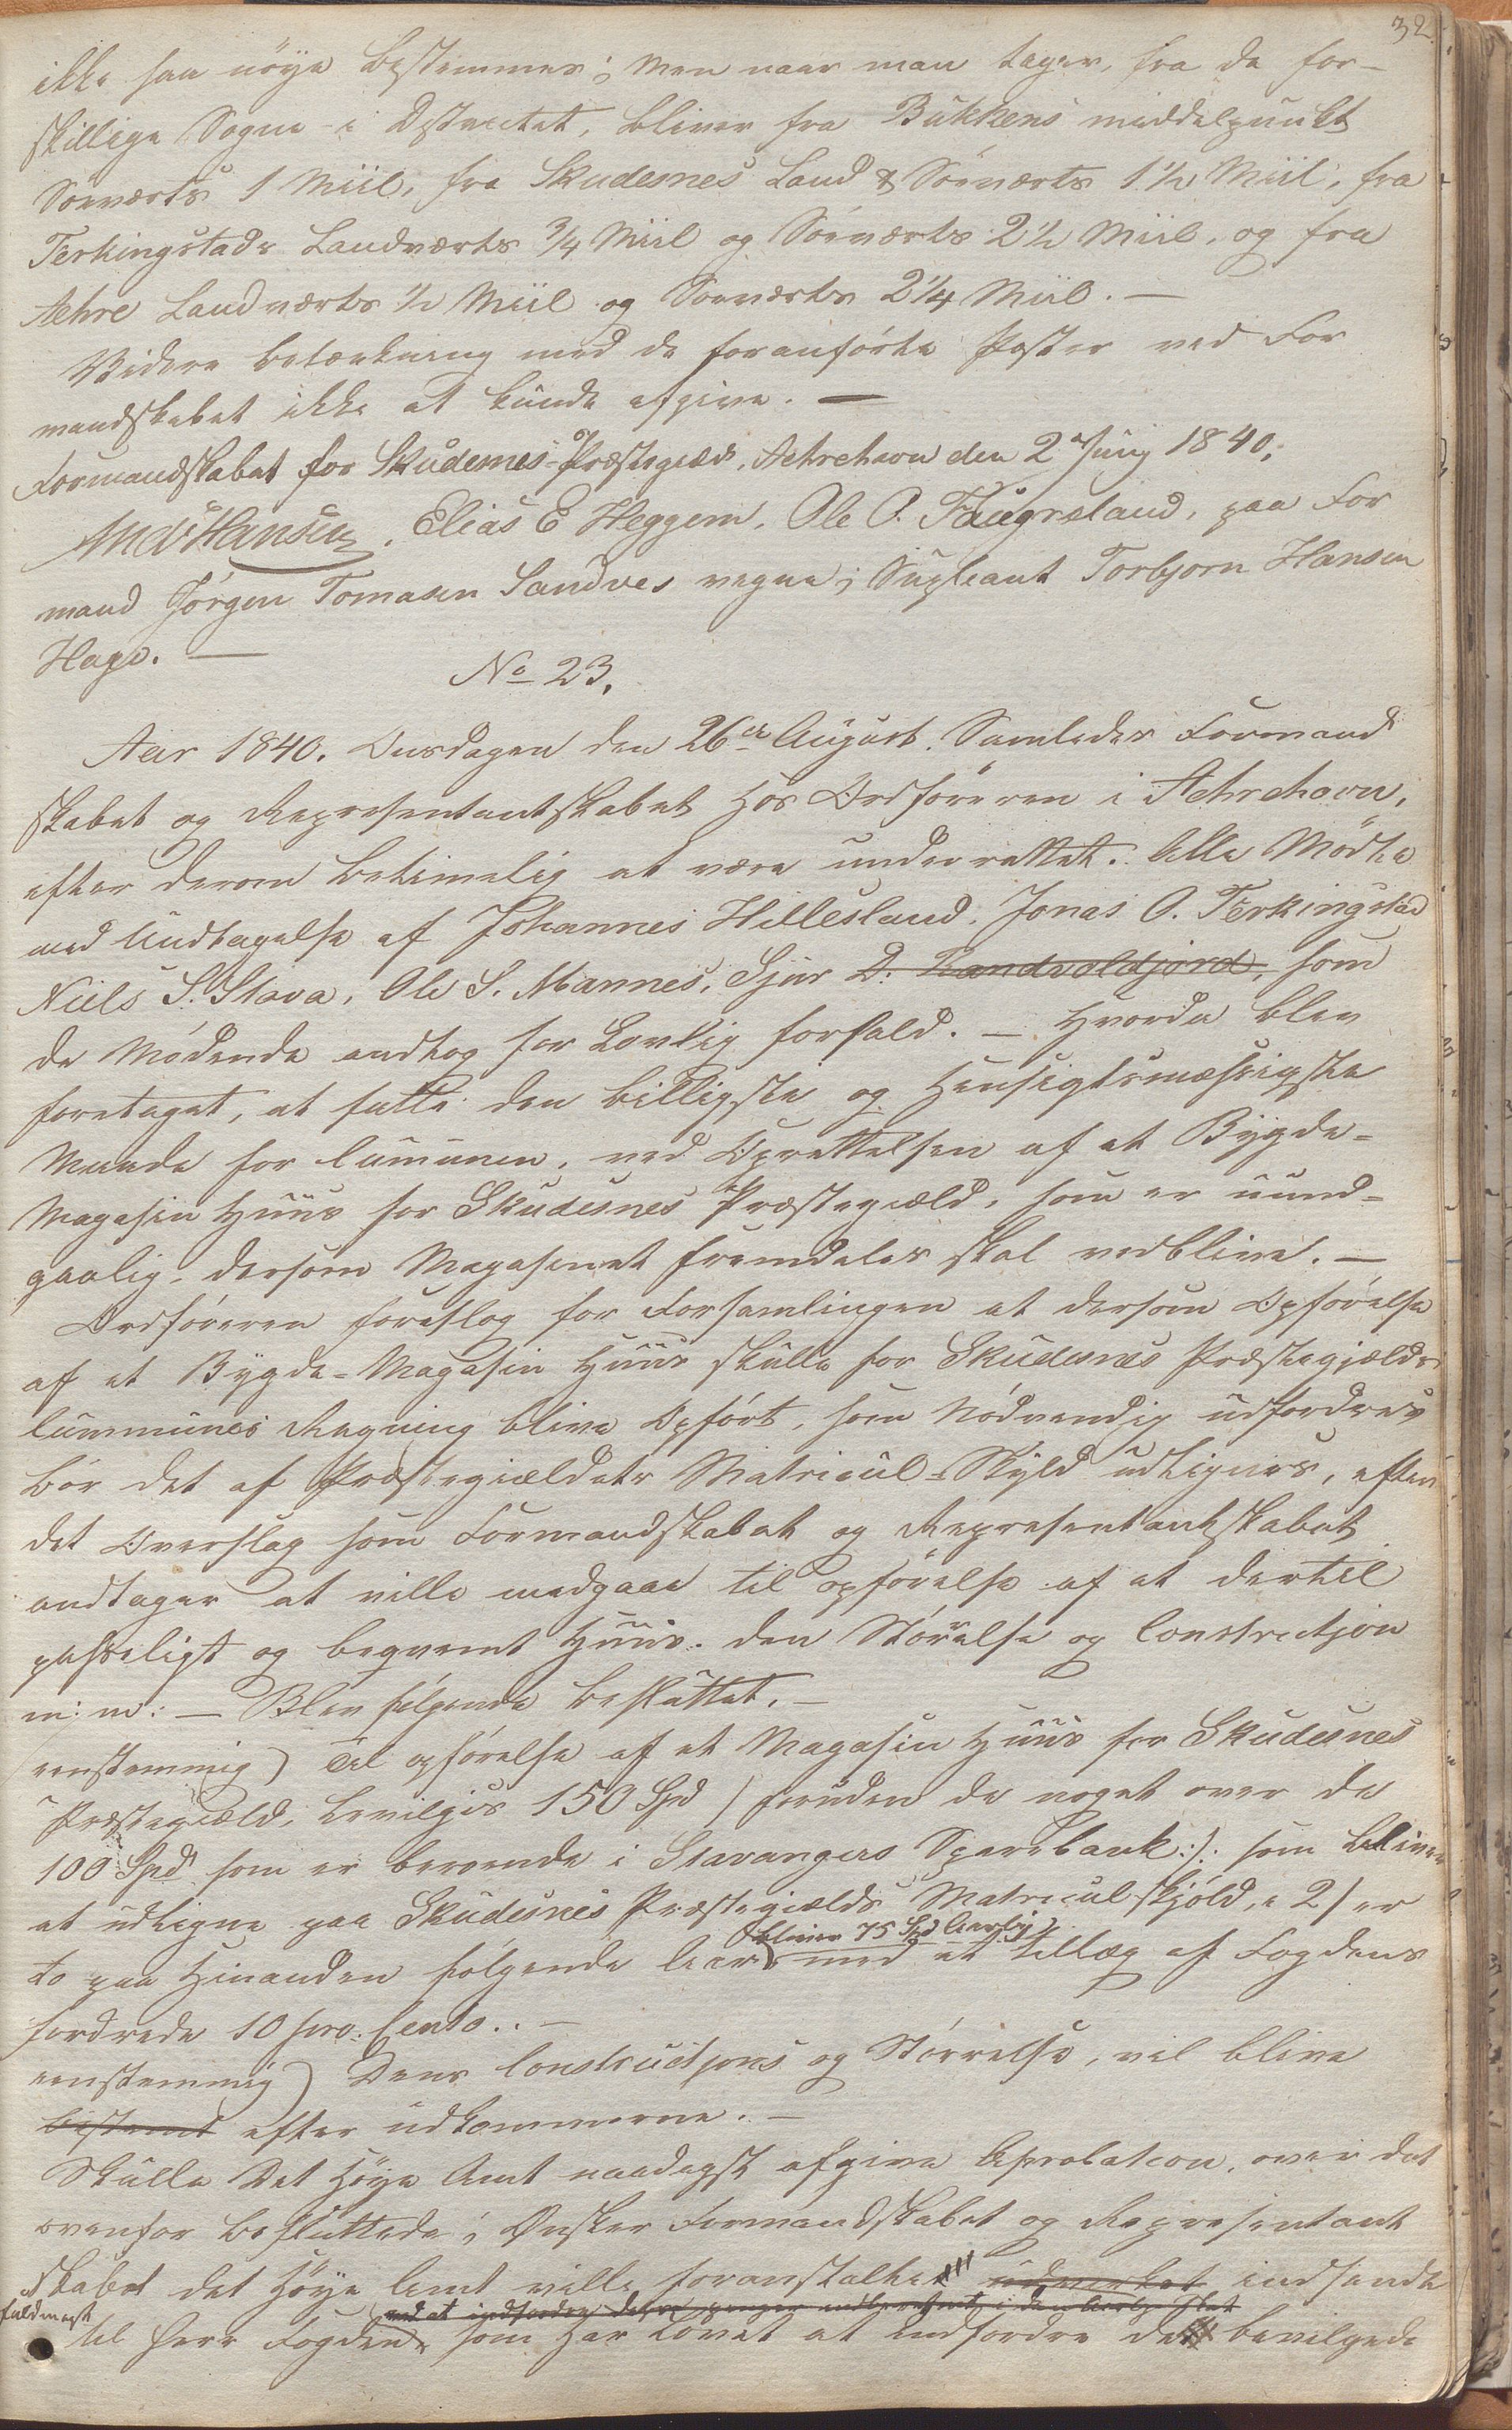 32.
ikke saa nöye bestemmes; Men naar man tager, fra de for-
skillige Sogne i Distrectet, bliver fra Bukkens middelpunkt
Söeværts 1 Miil, fra Skudesnes Land & Söeværts 1 1/2 Miil, fra
Ferkingstads Landværts 3/4 Miil og Söeværts 2 1/2 Miil, og fra
Aehre Landværts 1/2 Miil og Söeværts 2 1/4 Miil. —
Videre betænkning med de foranförte Poster ved For
mandskabet ikke at kunde afgive. —
Formandskabet for Skudesnes Præstegield, Aehrehavn den 2 Juny 1840,
Ands Hansen, Elias E Heggem, Ole O. Faugesland, paa For
mand Jörgen Tomasen Sandves vegne; Supleant Torbjorn Hansen
Hage. —
No 23,
Aar 1840. Onsdagen den 26de August. Samledes Formand
skabet og Representantskabet hos Ordföreren i Aehrehavn,
efter derom betimelig at være underrettet. Alle Mödte
med Undtagelse af Johannes Hillesland, Jonas O. Ferkingstad
Niels S. Stava, Ole S. Mannes, Sjur D: Tandvoldjord, som
de Mödende andtog for Lovlig forfald. — Hvorda blev
foretaget, at fatte den billigste og Hensigtsmæssigste
Maade for Cumunen, ved Oprettelsen af et Bygde-
Magasin Huus for Skudesnes Præstegiæld, som er uund-
gaalig, dersom Magasinet fremdeles skal vedblive. —
Ordföreren foreslog for Forsamlingen at dersom Opförelse
af et Bygde-Magasin Huus skulle for Skudesnes Præstegjælds
Cummunes Regning blive Opfört, som Nödvendig udfordres
bör det af Præstegiældets Matricul-Skyld udlignes, efter
det Overslag som Formandskabet og Representantskabet
andtager at ville medgaae til opförelse af et dertil
passeligt og beqvemt Huus. den Störrelse og Constructjon
m: m: — Blev fölgende besluttet. —
eenstemmig) Til opförelse af et Magasin Huus for Skudesnes
Præstegiæld, bevilges 150 Spd / foruden de noget over de
100 Spd som er beroende i Stavangers Sparebank :/: som bliver
at udligne paa Skudesnes Præstegiælds Matricul skjöld, i 2/ er
bliver 75 Spd Aarlig
to paa Hinanden fölgende Aar med et tillæg af Fogdens
fordrede 10 pro. Cento.. —
eenstemmig) Dens Constructjons og Störrelse, vil blive
bestemt efter udkommerne. —
Skulle Det Höye Amt naadegst afgive Aprobation, over det
ovenfor besluttede; Ønsker Formandskabet og Representant
skabet det Höye Amt ville foranstalte udvirket indsende
fuldmagt
ved at indfordre disse penger
til Herr Fogden, som har Lovet at Indfordre de bevilgede